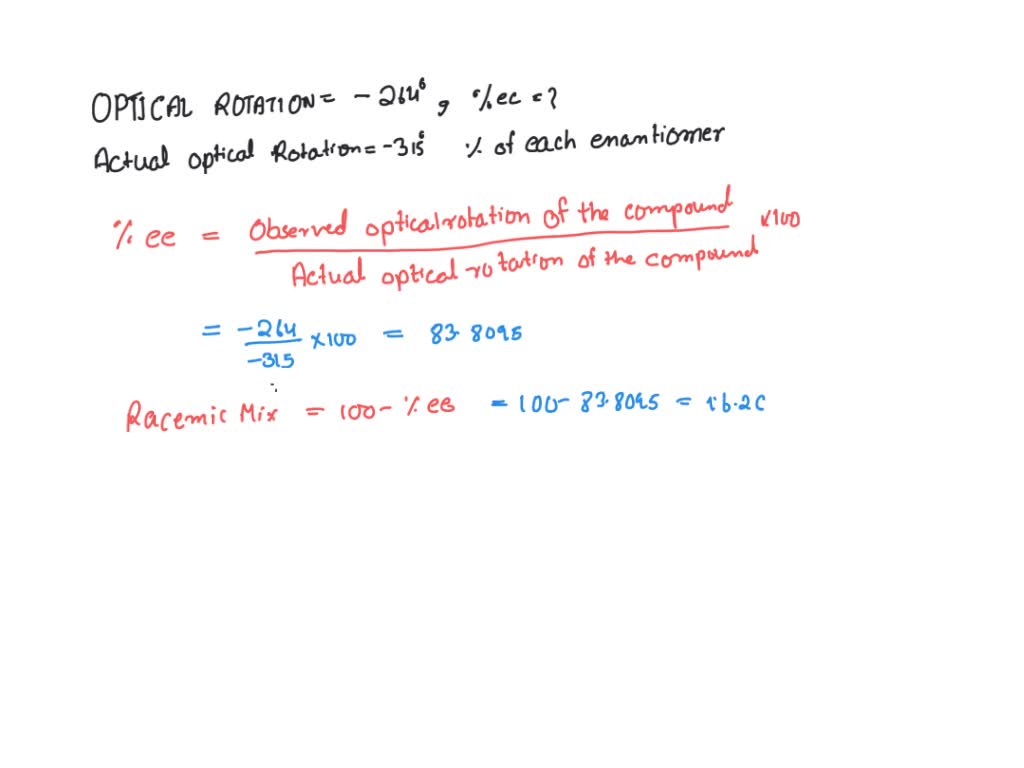 OPTICAL ROTATION = - 264°, % ee = ?
Actual optical Rotation = -315° % of each enantiomer
% ee = Observed optical rotation of the compound x100
Actual optical rotation of the compound
= -264 x100 = 83.8095
-315
Racemic Mix = 100 - % ee = 100 - 83.8095 = 16.20